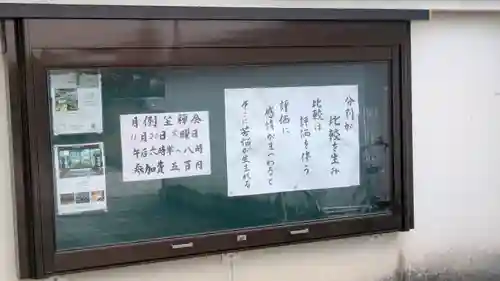 分別が
比較を生み
比較は
評価を伴う
評価に
感情がまつわると
そこに苦悩が生まれる
月例坐禅会
11月20日火曜日
午后六時半〜八時
参加費五百円